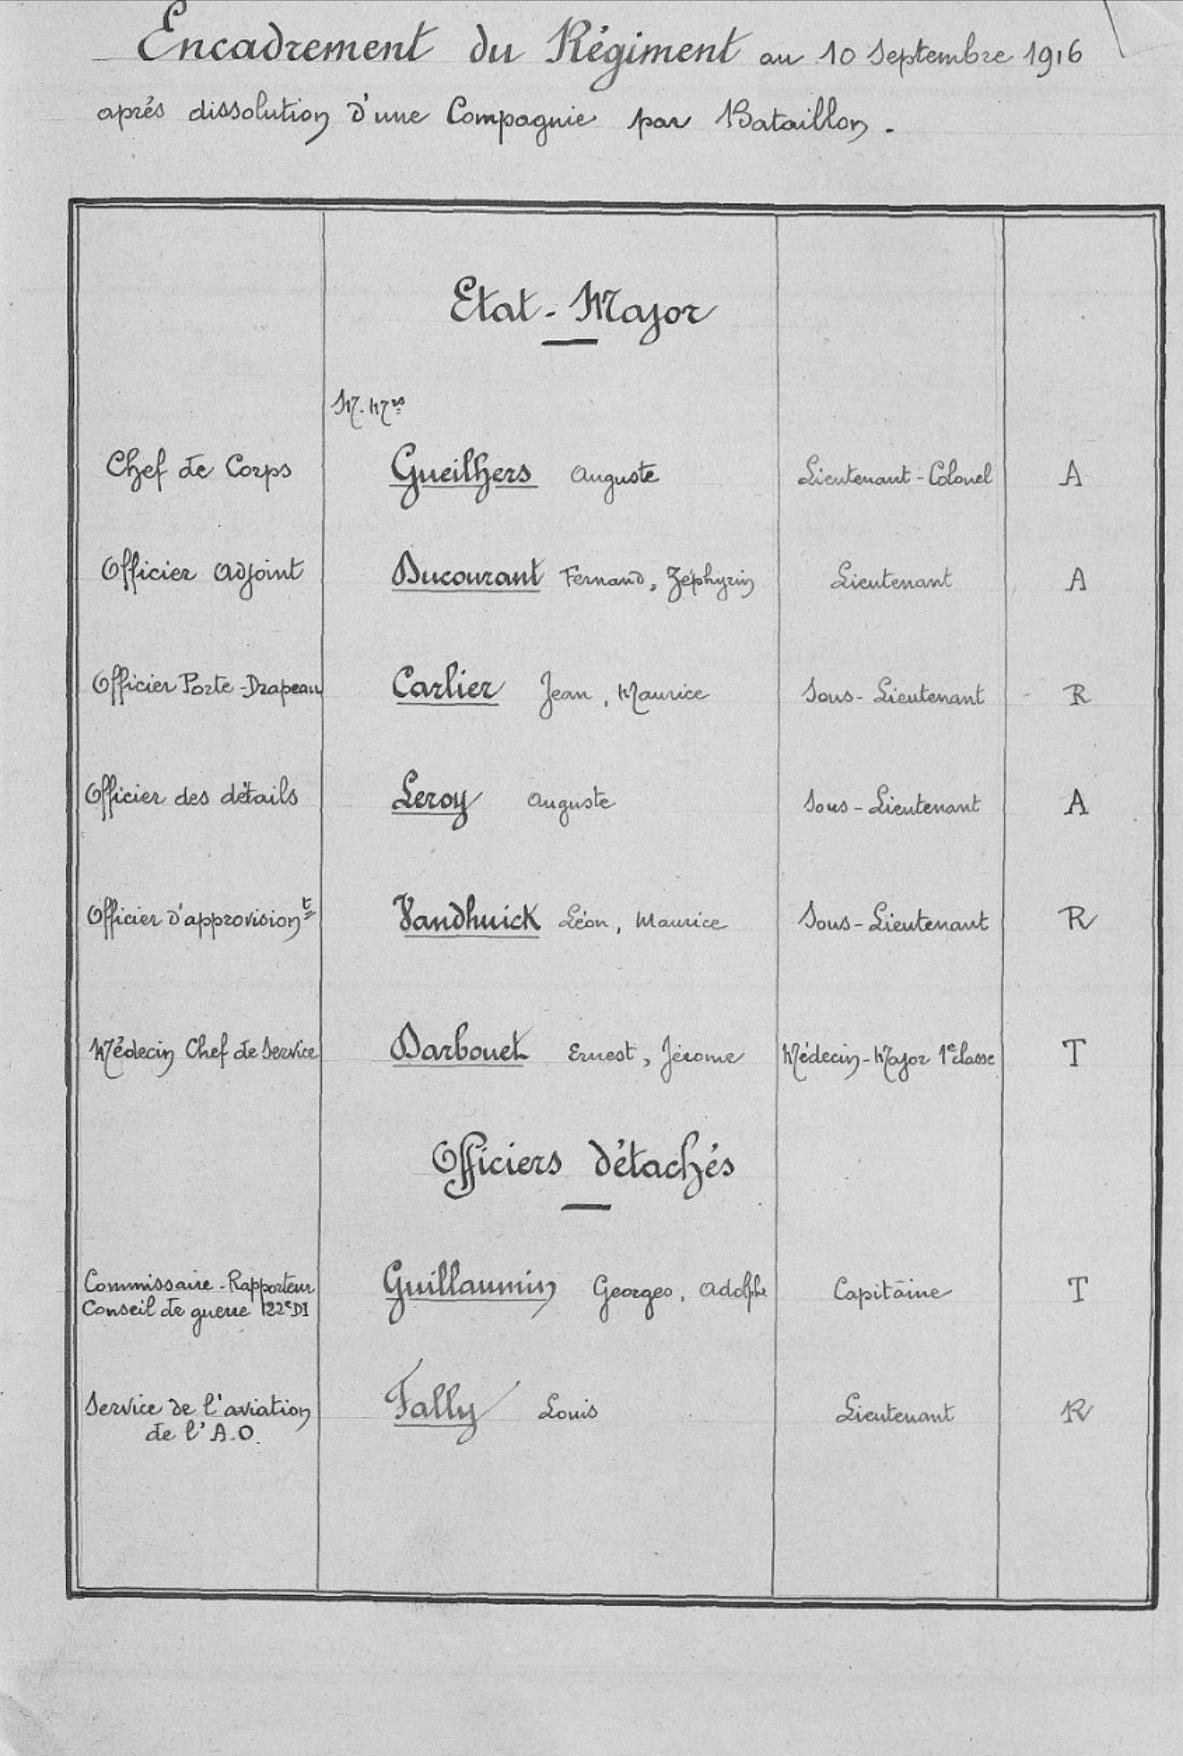 Encadrement du Régiment au 10 Septembre 1916
après dissolution d'une Compagnie par Bataillon.
Etat-Major
M.Mrs
Chef de Corps Gueilhers Auguste Lieutenant-Colonel A
Officier Adjoint Ducourant Fernand, Zéphyrin Lieutenant A
Officier Porte-Drapeau Carlier Jean, Maurice Sous-Lieutenant R
Officier des détails Leroy Auguste Sous-Lieutenant A
Officier d'approvisiont Vandhuick Léon, Maurice Sous-Lieutenant R
Médecin Chef de Service Darbouet Ernest, Jérome Médecin-Major 1e classe T
Officiers détachés
Commissaire-Rapporteur
Conseil de guerre 122e DI Guillaumin Georges, Adolphe Capitaine T
Service de l'aviation
de l'A.O. Fally Louis Lieutenant R